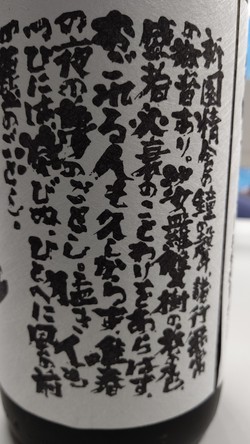 祇園精舎の鐘の聲、諸行無常
の響あり。沙羅雙樹の花の色、
盛者必衰のことわりをあらはす。
おごれる人も久しからず、唯春
の夜の夢のごとし。猛き人も
つひには滅びぬ、ひとへに風の前
の塵のごとし。